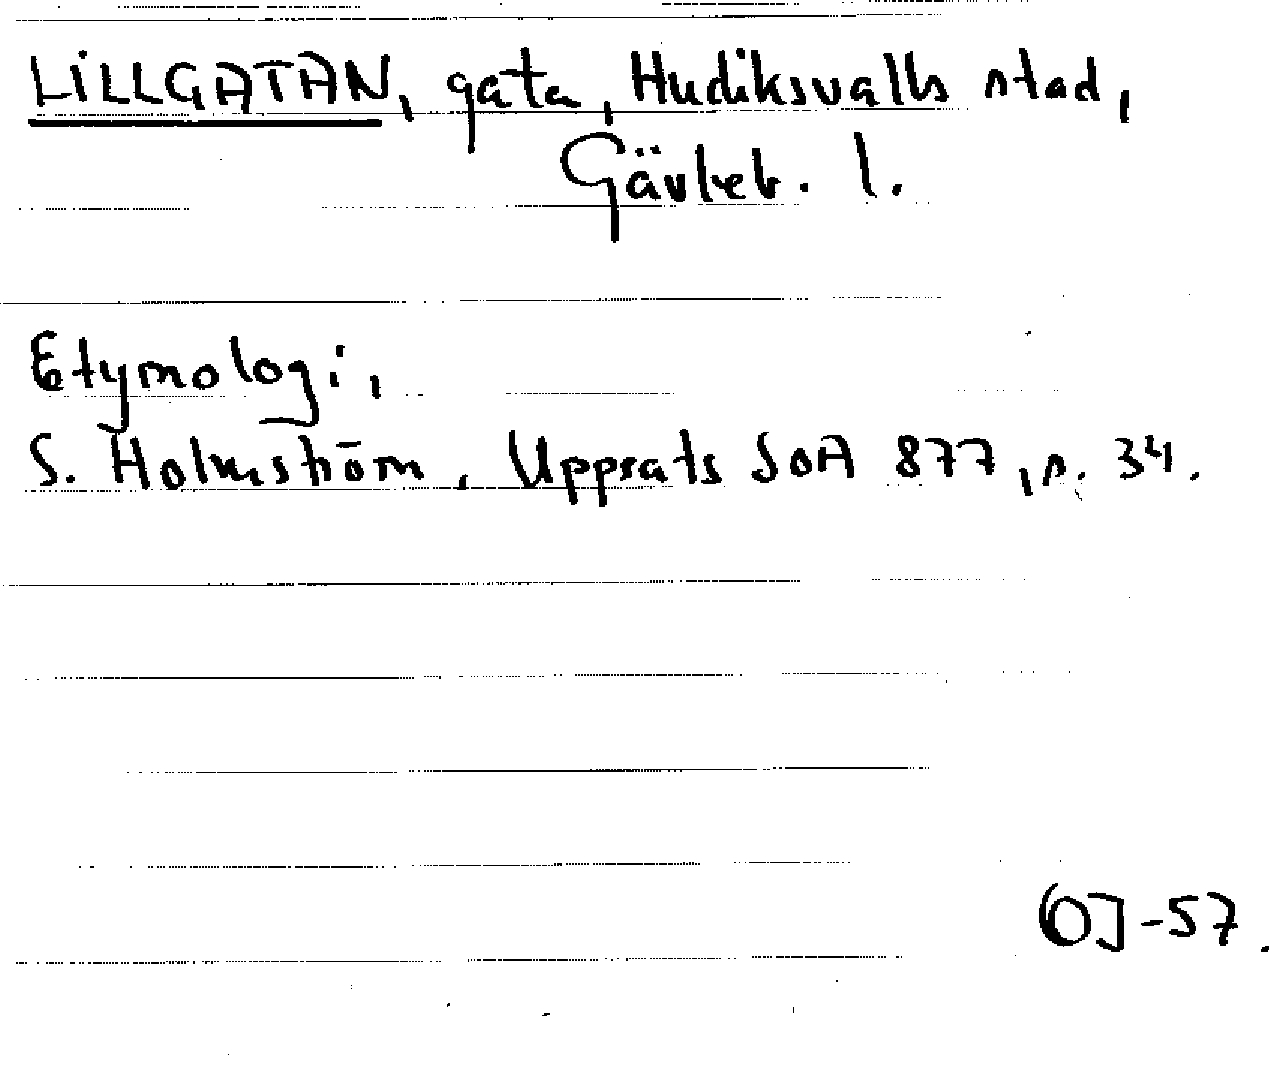 LILLGATAN, gata, Hudiksvalls stad,
Gävleb. l.
Etymologi,
S. Holmström, Uppsats SOA 877, s. 34.
OJ -57.